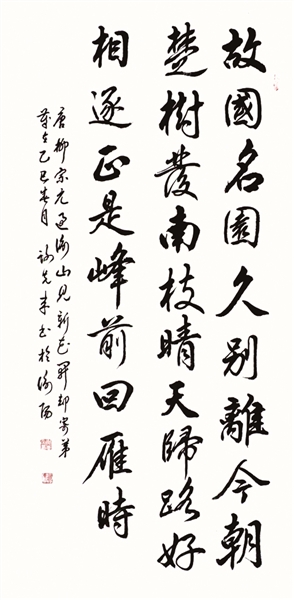 故國名園久别離今朝
楚樹發南枝晴天歸路好
相逐正是峰前回雁時
唐柳宗元過衡山見新花開却寄弟
歲在乙巳春月 先来书於衡陽